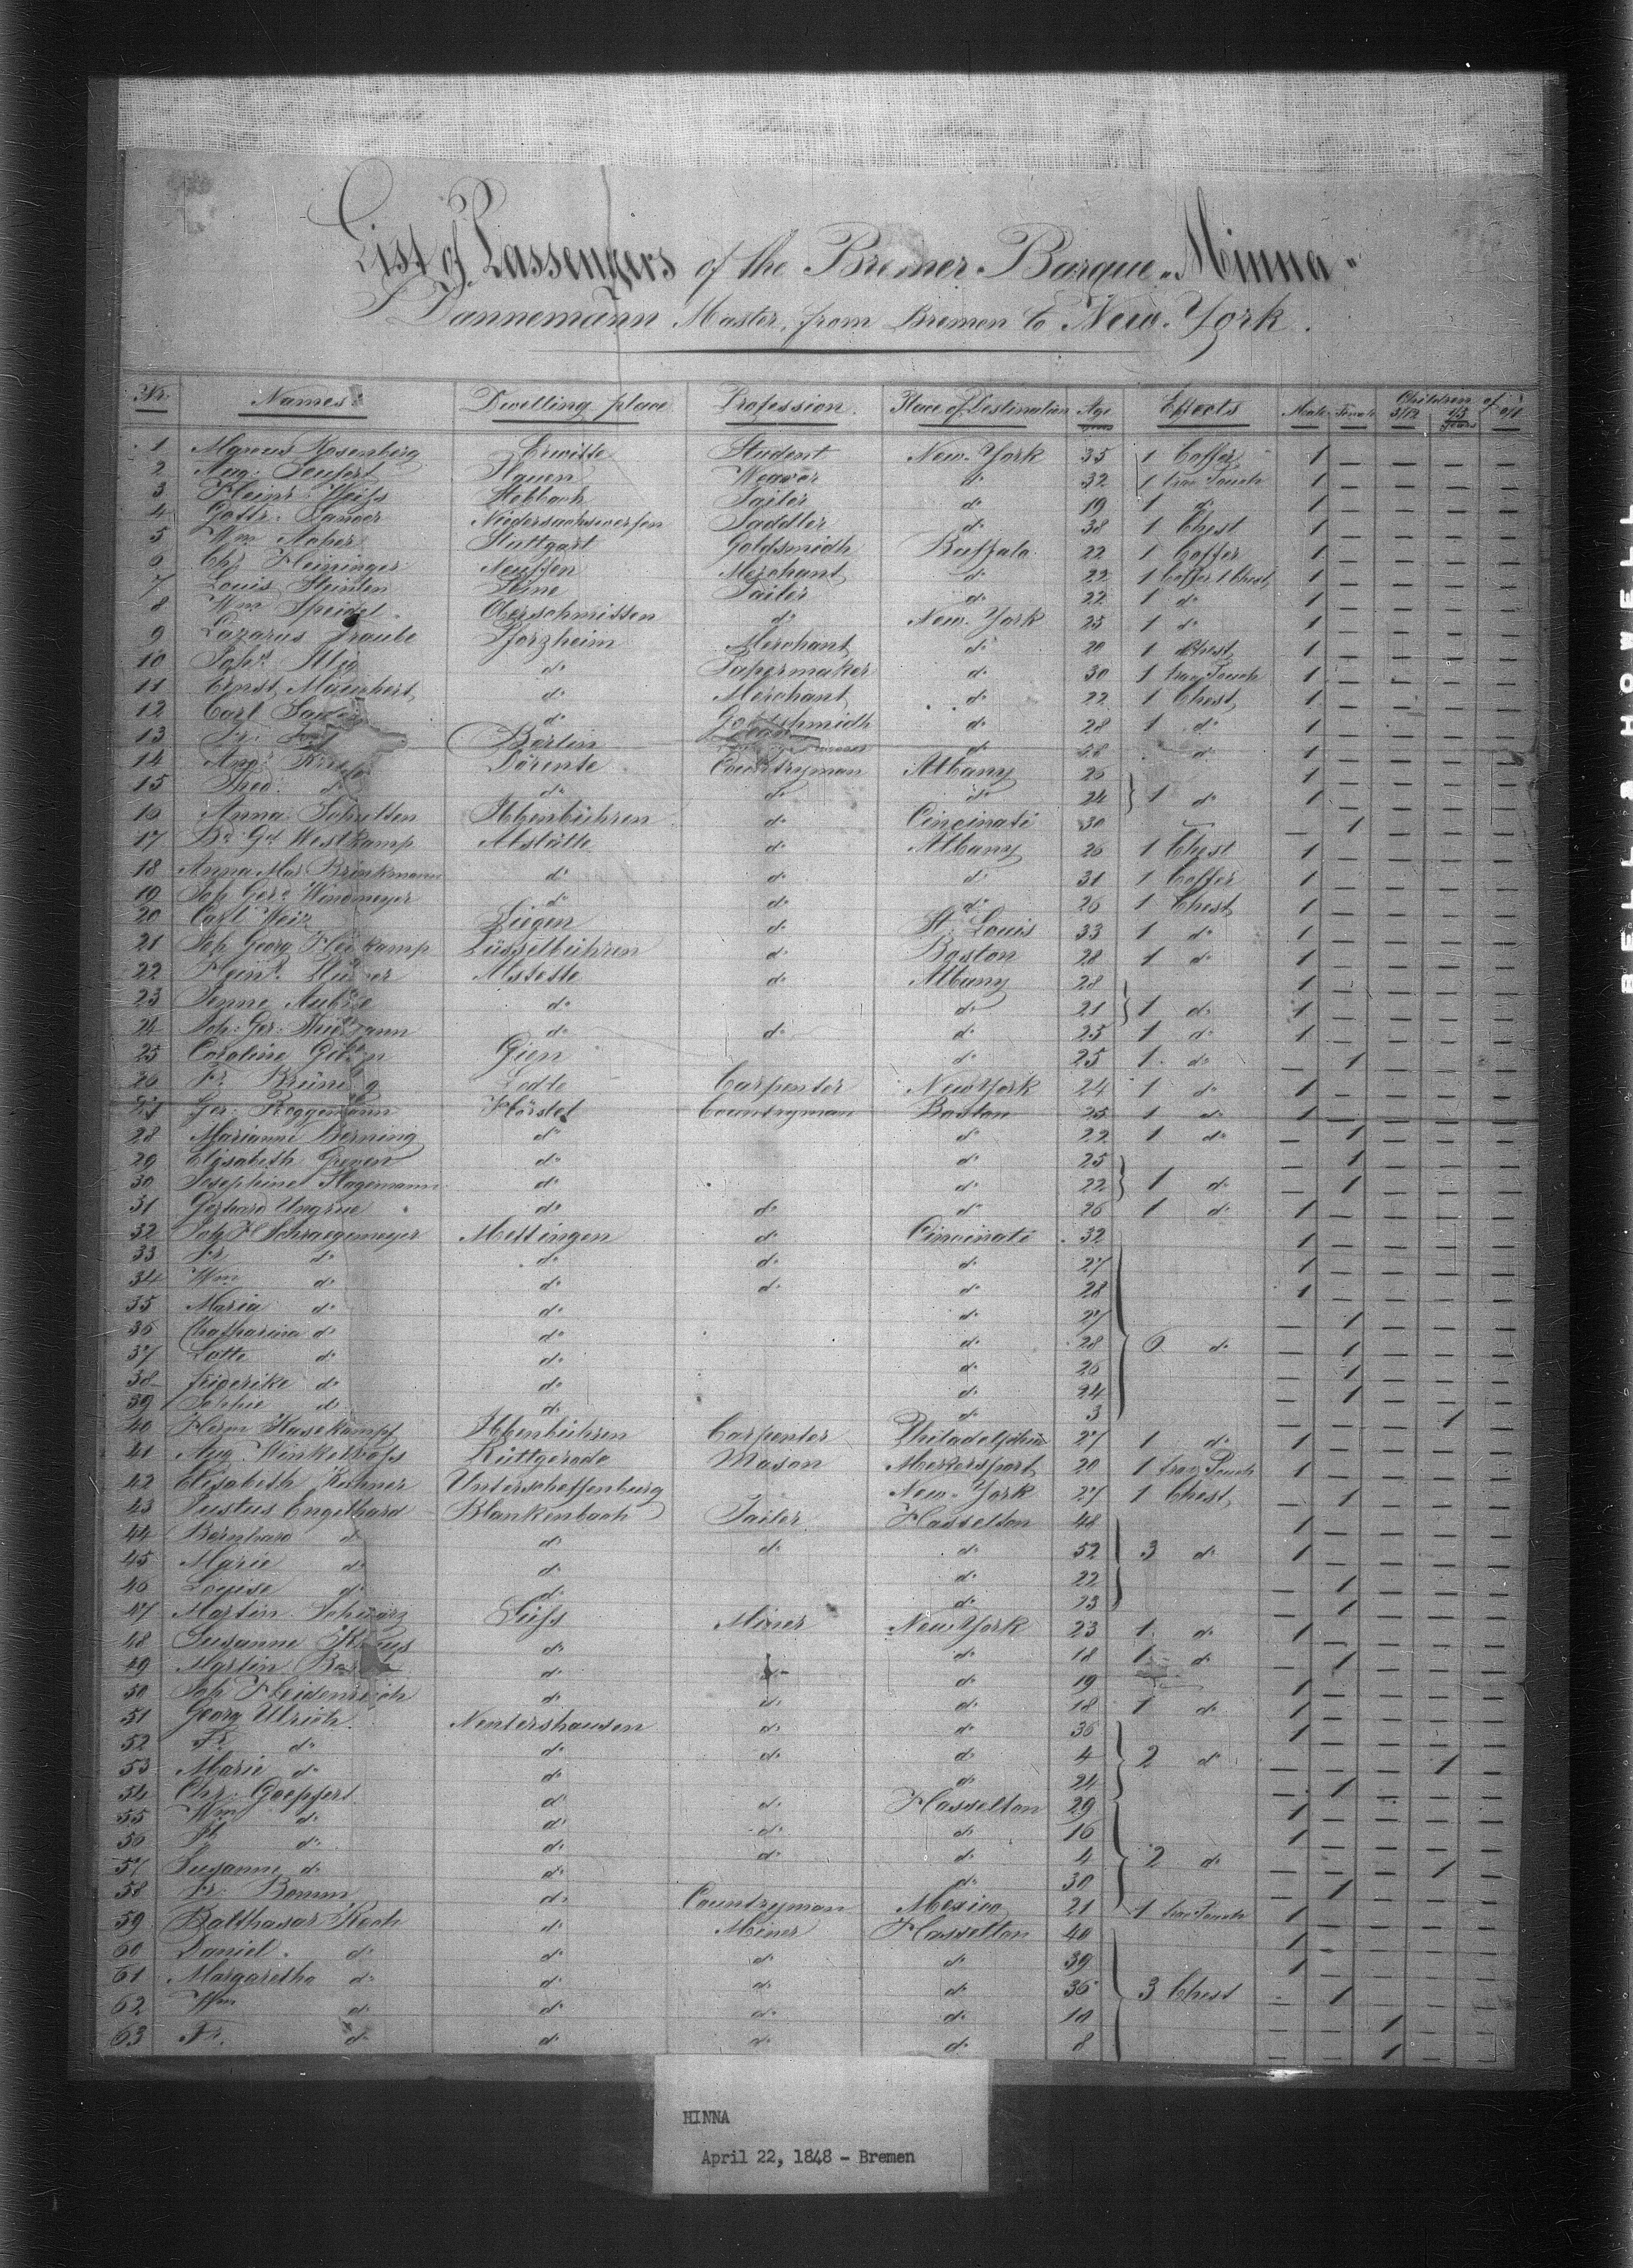 List of Passengers of the Bremer Barque "Minna"
D Dannemann Master, from Bremen to New-York.
Nr. Names Dwelling place Profession Place of Destination Age years Effects Male Female Children of
1 Marcus Rosenberg Erwitte Student New-York 35 1 Coffer 1 — — — —
2 Aug: Seufert Plauen Weaver d° 32 1 1 — — — —
3 Heinr: Weiss Tailor d° 19 1 d° 1 — — — —
4 Gottr: Niedersachswerfen Saddler d° 38 1 Chest 1 — — — —
5 Wm Stuttgart Goldsmidh Buffalo 22 1 Coffer 1 — — — —
6 Chr. Heininger Neuffen Merchant d° 22 1 Coffer 1 Chest 1 — — — —
7 Louis Tailer d° 22 1 d° 1 — — — —
8 Wm Speidel Oberschmitten d° New-York 25 1 d° 1 — — — —
9 Lazarus Traube Pforzheim Merchant d° 20 1 Chest 1 — — — —
10 Joh: Illig d° Papermaker d° 30 1 1 — — — —
11 Ernst d° Merchant d° 22 1 Chest 1 — — — —
12 Carl d° Goldschmidh d° 28 1 d° 1 — — — —
13 Fr: Berlin d° 28 d° 1 — — — —
14 Aug: Dörente Countryman Albany 26 1 — — — —
15 Theo: d° d° d° d° 24 1 d° 1 — — — —
16 Anna Schulten Ibbenbühren d° Cincinati 30 — 1 — — —
17 Bd Gd Westkamp Alstätte d° Albany 26 1 Chest 1 — — — —
18 Anna Mar Brinkmann d° d° d° 31 1 Coffer 1 — — — —
19 Joh Ger: Windmeyer d° d° d° 26 1 Chest 1 — — — —
20 Carl Weiz Siegen d° St. Louis 33 1 d° 1 — — — —
21 Joh Georg Lüsselbühren d° Boston 28 1 d° 1 — — — —
22 Heinr. Alstette d° Albany 28 1 — — — —
23 Jenne d° d° 21 1 d° 1 — — — —
24 Joh: Ger: d° d° d° 25 1 d° 1 — — — —
25 Caroline Gien d° 25 1 d° — 1 — — —
26 Fr. Brüning Lodte Carpenter New York 24 1 d° 1 — — — —
27 Ger: Roggemann Hörstel Countryman Boston 25 1 d° 1 — — — —
28 Marianne Berning d° d° 22 1 d° — 1 — — —
29 Elisabeth Greven d° d° 25 — 1 — — —
30 Josephine Hagemann d° d° 22 1 d° — 1 — — —
31 Gerhard Ungrue d° d° d° 26 1 d° 1 — — — —
32 Joh H Schraegemeyer Mettingen d° Cincinati 32 1 — — — —
33 Fr d° d° d° d° 27 1 — — — —
34 Wm d° d° d° d° 28 1 — — — —
35 Maria d° d° d° 27 — 1 — — —
36 Chatharina d° d° d° 28 6 d° — 1 — — —
37 Lotte d° d° d° 26 — 1 — — —
38 Friderike d° d° d° 24 — 1 — — —
39 Sophie d° d° d° 3 — — — 1 —
40 Herm Hasekampf Ibbenbühren Carpenter Philadelphia 27 1 d° 1 — — — —
41 Aug. Winkelvoss Rüttgerode Mason 20 1 1 — — — —
42 Elisabeth Kuhner Unterscheffenburg New-York 27 1 Chest — 1 — — —
43 Justus Engelhard Blankenbach Tailer Hasselton 48 1 — — — —
44 Bernhard d° d° d° d° 52 3 d° 1 — — — —
45 Marie d° d° d° 22 — 1 — — —
46 Louise d° d° d° 23 — 1 — — —
47 Martin Schwarz Süss Miner New York 23 1 d° 1 — — — —
48 Susanne d° d° 18 1 d° — 1 — — —
49 Martin d° d° 19 1 — — — —
50 Joh Heidenreich d° d° d° 18 1 d° 1 — — — —
51 Georg Ulrich Nentershausen d° d° 36 1 — — — —
52 Fr. d° d° d° d° 4 2 d° — — — 1 —
53 Marie d° d° d° 24 — 1 — — —
54 Chr: Goepfert d° d° Hasselton 29 1 — — — —
55 Wm d° d° d° d° 16 1 — — — —
56 d° d° d° d° 4 2 d° — — — 1 —
57 Susanne d° d° d° 30 — 1 — — —
58 Fr. Bomm d° Countryman Mexico 21 1 1 — — — —
59 Balthasar Koch d° Miner Hasselton 40 1 — — — —
60 Daniel d° d° d° d° 39 1 — — — —
61 Margaretha d° d° d° d° 36 3 Chest — 1 — — —
62 Wm d° d° d° d° 10 — — 1 — —
63 Fr. d° d° d° d° 8 — — 1 — —
HINNA
April 22, 1848 - Bremen
BELL & HOWELL